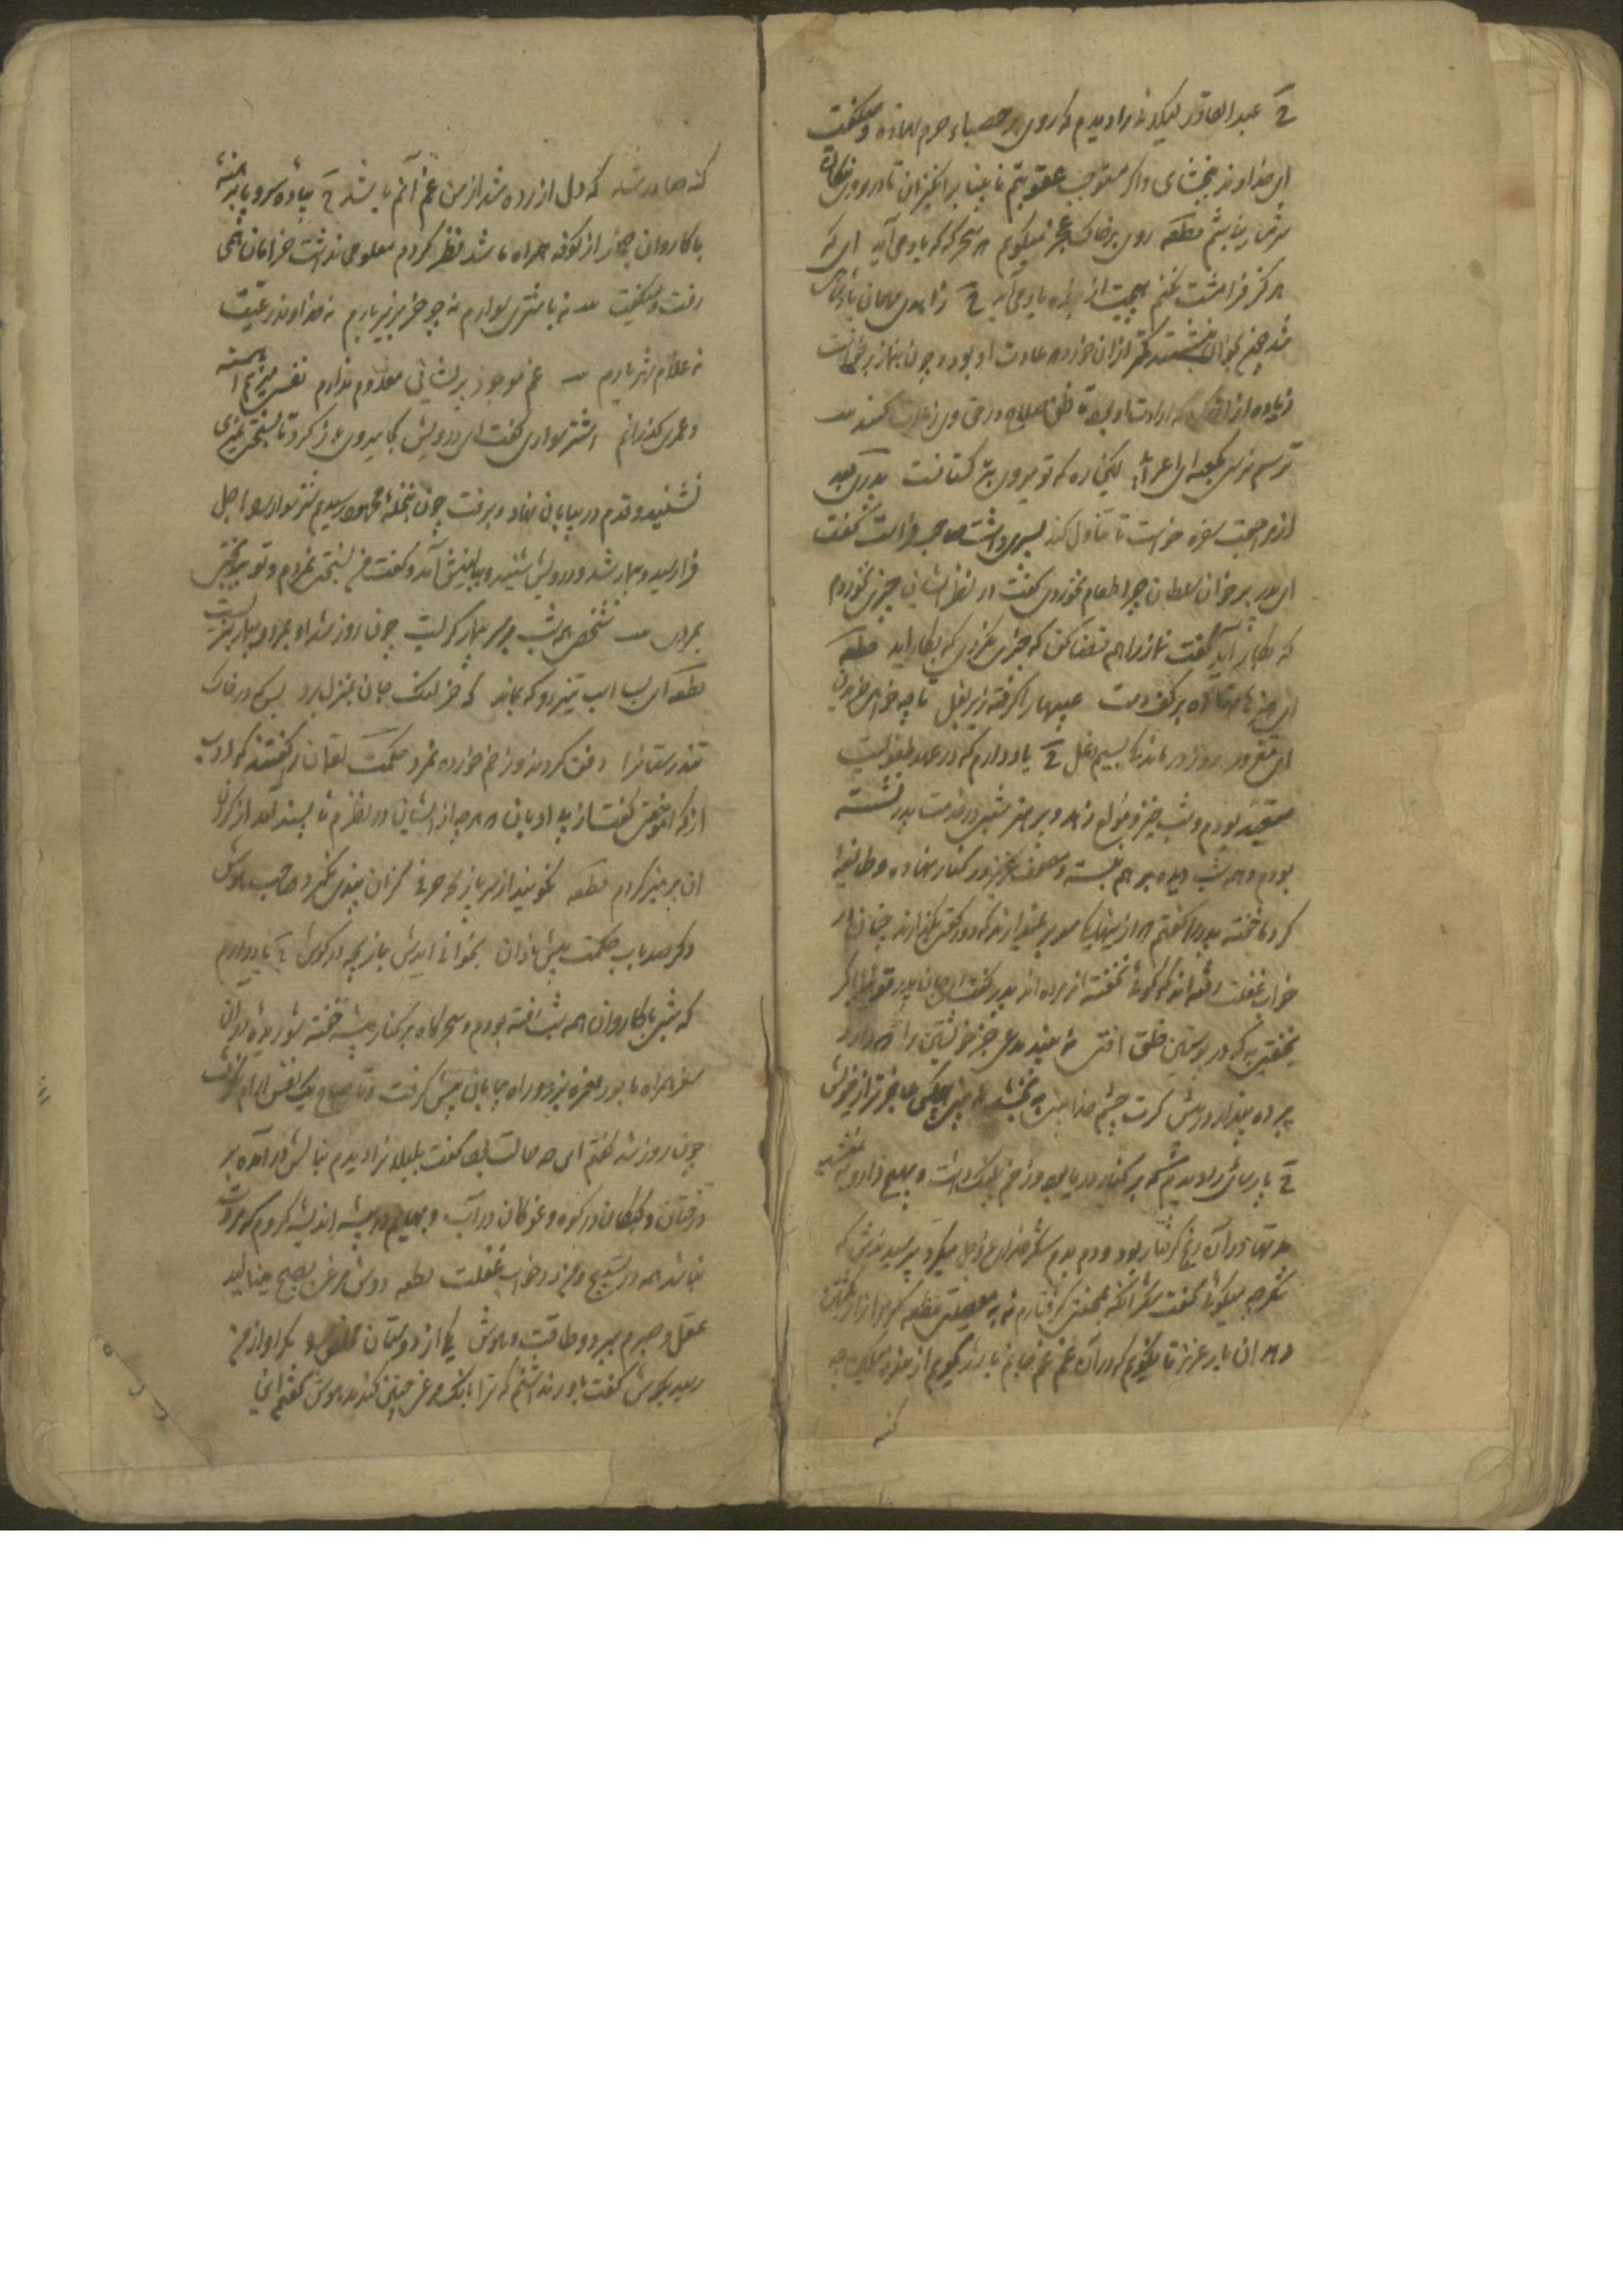 ح عبدالقادر گیلانی را دیدم که روی بر حصباء حرم نهاده و میگفت
ای خداوند ببخشای و اگر مستوجب عقوبتم نابینا برانگیزان تا در روی نیکان
شرمسار نباشم قطعه روی بر خاک عجز میگویم هر سحرگه که یاد می آید ای که
هرگز فرامشت نکنم هیچت از بنده یاد می آید ح زاهدی مهمان پادشاهی
شد چون بخوان بنشستند کمتر از آن خورد که عادت او بود و چون بنماز برخاست
زیاده از آن کرد که ارادت او بود تا ظن صلاح در حق وی زیادت کنند
ترسم نرسی بکعبه ای اعرابی کین ره که تو میروی بترکستانست بعد
از مراجعت سفره خواست تا تناول کند پسری داشت صاحب فراست گفت
ای پدر بر خوان سلطان چرا طعام نخوردی گفت در نظر ایشان چیزی نخوردم
که بکار آید گفت نماز را هم قضا کن که چیزی نکردی که بکار آید قطعه
ای هنرها نهاده بر کف دست عیبها را گرفته زیر بغل تا چه خواهی خریدن
ای مغرور روز درماندگی بسیم دغل ح یاد دارم که در عهد طفولیت
متعبد بودم و شب خیز و مولع زهد و پرهیز شبی در خدمت پدر نشسته
بودم و همه شب دیده بر هم نبسته و مصحف عزیز در کنار نهاده و طایفهٔ
گرد ما خفته پدر را گفتم از اینها یکی سر بر نمیدارند که دو رکعت بگذارند چنان در
خواب غفلت رفته اند که گوئی نخفته اند مرده اند پدر گفت ای جان پدر تو نیز اگر
بخفتی به که در پوستین خلق افتی نه بیند مدعی جز خویشتن را که دارد
پرده پندار در پیش گرت چشم خدا بینی ببخشند نه بینی هیچکس عاجزتر از خویش
ح پارسائی را دیدم که بر کنار دریا بود و زخم پلنگ داشت و بهیچ دارو به نمیشد
مدتها در آن رنج گرفتار بود و دم بدم شکر خدای عز و جل میکرد پرسیدندش که
شکر چه میگوئی گفت شکر آنکه بمصیبتی گرفتارم نه بمعصیتی قطعه گر مرا زار بکشتن
دهد آن یار عزیز تا نگوئی که در آن دم غم جانم باشد گویم از بنده مسکین چه
گنه
گنه صادر شد که دل آزرده شد از من غم آنم باشد ح پیاده سر و پا برهنه
با کاروان حجاز از کوفه همراه ما شد نظر کردم معلومی نداشت خرامان همی
رفت و میگفت نه باشتری سوارم نه چو خر بزیر بارم نه خداوند رعیت
نه غلام شهریارم غم موجود و پریشانی معدوم ندارم نفسی میزنم آهسته
و عمری گذرانم اشتر سواری گفت ای درویش کجا میروی باز گرد تا بسختی نمیری
نشنید و قدم در بیابان نهاد و برفت چون بنخلهٔ محمود رسیدیم شتر سوار را اجل
فرا رسید و بمرد درویش ببالینش آمد و گفت ما بسختی نمردیم و تو بر بختی
بمردی شخصی همه شب بر سر بیمار گریست چون روز شد او بمرد و بیمار بزیست
قطعه ای بسا اسب تیزرو که بماند که خر لنگ جان بمنزل برد بسکه در خاک
تندرستان را دفن کردند و زخم خورده نمرد حکمت لقمان را گفتند که ادب
از که آموختی گفت از بی ادبان هر چه از ایشان در نظرم ناپسند آمد از کردن
آن پرهیز کردم قطعه نگویند از سر بازیچه حرفی کزان پندی نگیرد صاحب هوش
و گر صد باب حکمت پیش نادان بخوانی آیدش بازیچه در گوش ح یاد دارم
که شبی با کاروان همه شب رفته بودم و سحرگاه بر کنار بیشه خفته شوریدهٔ در آن
سفر همراه ما بود نعره بزد و راه بیابان پیش گرفت و تا صباح یک نفس آرام نگرفت
چون روز شد گفتم این چه حالت بود گفت بلبلان را دیدم بنالش در آمده بر
درختان و کبکان در کوه و غوکان در آب و بهایم در بیشه اندیشه کردم که مروت
نباشد همه در تسبیح و من در خواب غفلت قطعه دوش مرغی بصبح مینالید
عقل و صبرم ببرد و طاقت و هوش یکی از دوستان مخلص را مگر آواز من
رسید بگوش گفت باور نداشتم که ترا بانگ مرغی چنین کند مدهوش گفتم این